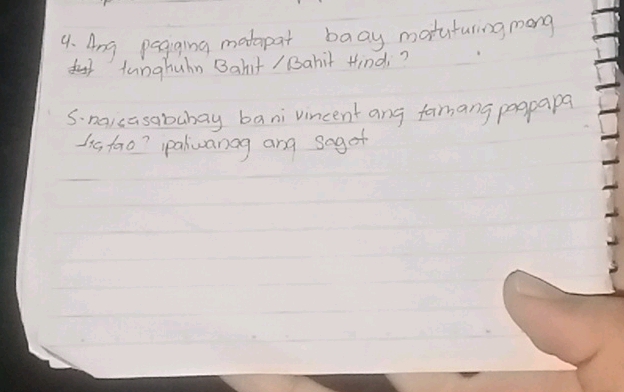 4. Ang pagiging matapat baay matuturing mong
tunghuhn Bahit / Bahit Hindi?
5. naisasabuhay bani vincent ang tamang pagpapa
tao? ipaliwanag ang sagot